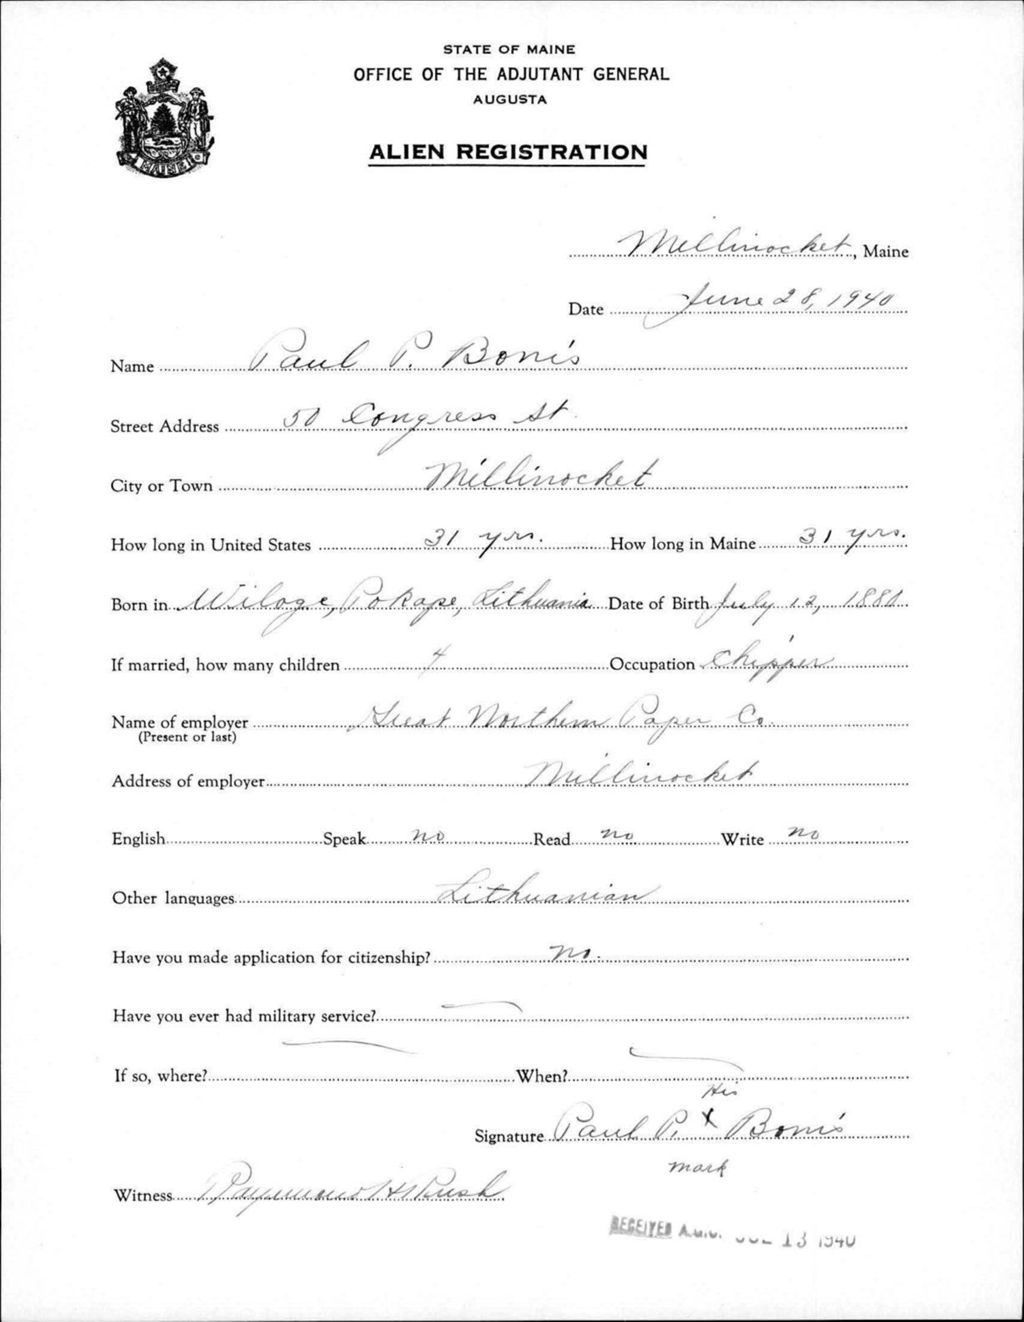 STATE OF MAINE
OFFICE OF THE ADJUTANT GENERAL
AUGUSTA
ALIEN REGISTRATION
MAINE
Millinocket, Maine
Date June 28, 1940
Name Paul P. Bonis
Street Address 50 Congress St.
City or Town Millinocket
How long in United States 31 yrs. How long in Maine 31 yrs.
Born in Wiloge, Pokape, Lithuania Date of Birth July 12, 1880
If married, how many children 4 Occupation Chipper
Name of employer Great Northern Paper Co.
(Present or last)
Address of employer Millinocket
English Speak no Read no Write no
Other languages Lithuanian
Have you made application for citizenship? No.
Have you ever had military service? —
If so, where? — When? —
His
Signature Paul P. X Bonis
mark
Witness Raymond H Rush
RECEIVED A.G.O. JUL 13 1940